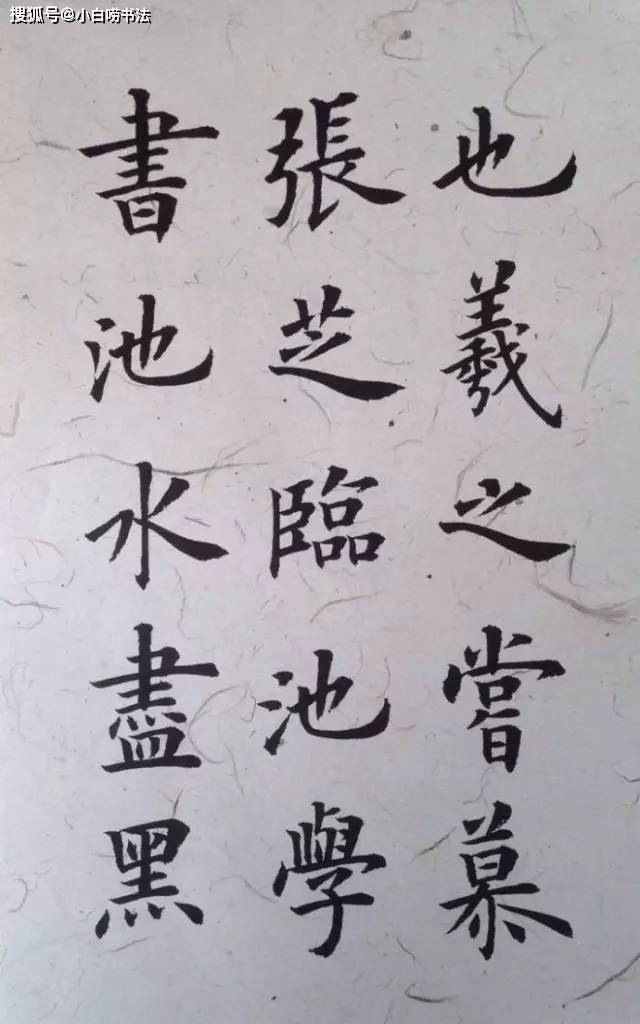 搜狐号@小白唠书法
也羲之嘗慕
張芝臨池學
書池水盡黑